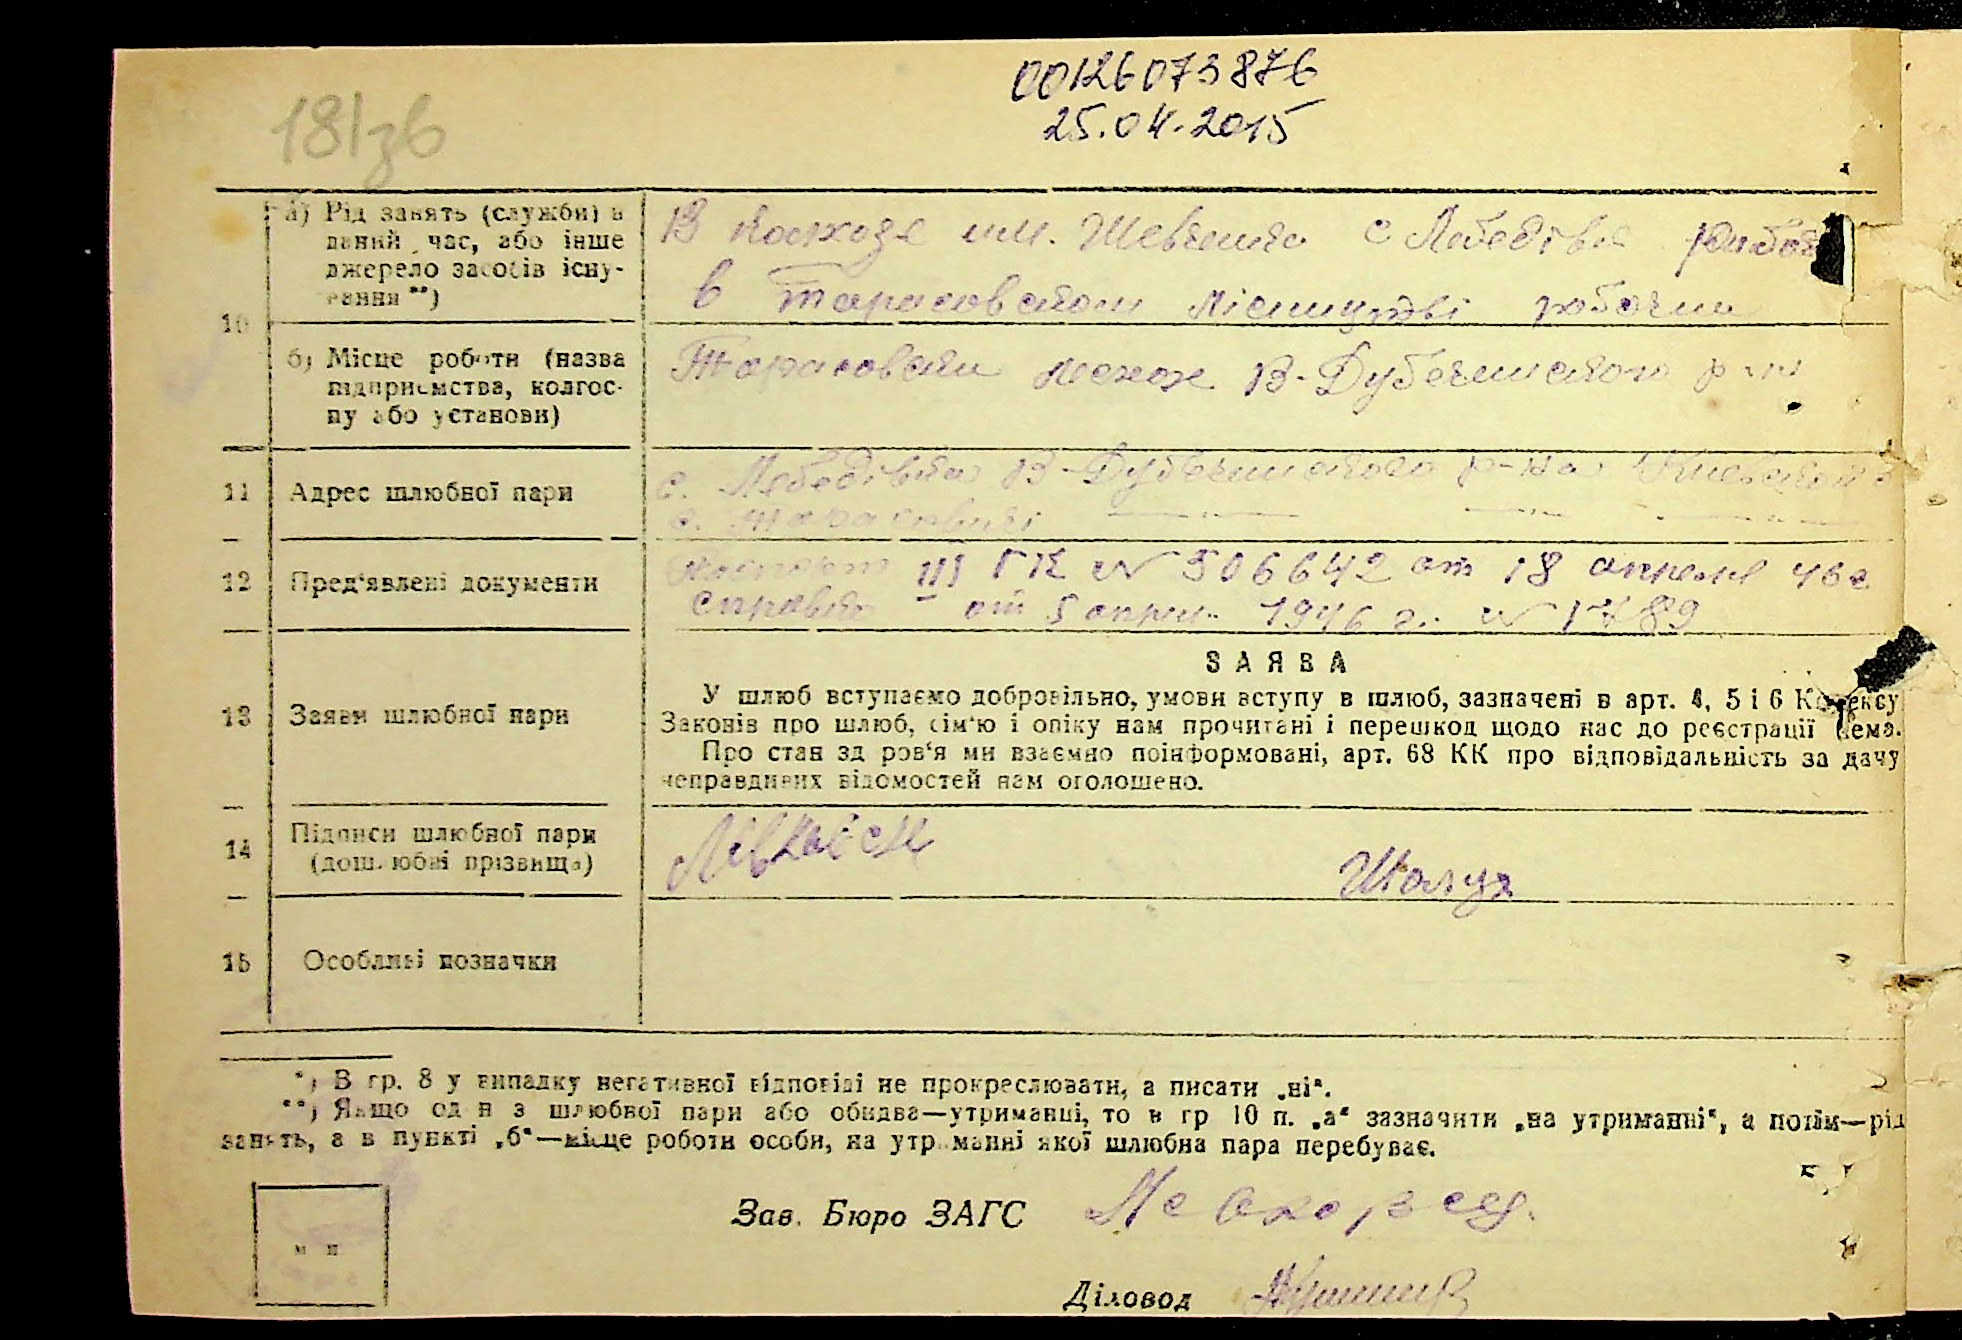 00126073876
25.04.2015
181зв
а) Рід занять (служби) в
даний час, або інше
джерело засобів існу-
вання **)
В колхозе им. Шевченко с Лебедівка
в Тарасовском лісництві робочим
10
б) Місце роботи (назва
підприємства, колгос-
пу або установи)
В-Дубечнского р-ну
11 Адрес шлюбної пари
с. Лебедівка В-Дубечнского р-на Киевской о
с. Тарасовичі
12 Пред'явлені документи
Паспорт III ГК № 506642 от 18 апреля 46 г
справка от 5 апрл. 1946 г. № 1789
13 Заяви шлюбної пари
ЗАЯВА
У шлюб вступаємо добровільно, умови вступу в шлюб, зазначені в арт. 4, 5 і 6 Кодексу
Законів про шлюб, сім'ю і опіку нам прочитані і перешкод щодо нас до реєстрації нема.
Про стан здоров'я ми взаємно поінформовані, арт. 68 КК про відповідальність за дачу
неправдивих відомостей нам оголошено.
14 Підписи шлюбної пари
(дошлюбні прізвища)
Шолуд
15 Особливі позначки
*) В гр. 8 у випадку негативної відповіді не прокреслювати, а писати „ні“.
**) Якщо один з шлюбної пари або обидва—утриманці, то в гр 10 п. „а“ зазначити „на утриманні“, а потім—рід
занять, а в пункті „б“—місце роботи особи, на утриманні якої шлюбна пара перебуває.
м п
Зав. Бюро ЗАГС
Діловод